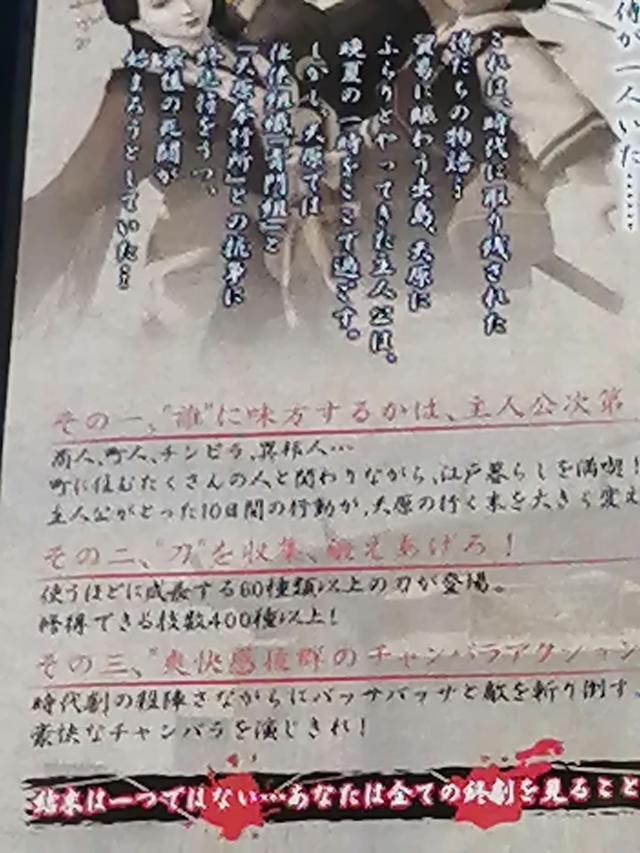 侍が一人いた……
これは、時代に取り残された
侍たちの物語…
貿易に賑わう出島、天原に
ふらりとやってきた主人公は、
晩夏の一時をここで過ごす。
しかし、天原では
「天原奉行所」との抗争に
終止符をうつ、
最後の死闘が
始まろうとしていた…
その一、"誰"に味方するかは、主人公次第
商人、町人、チンピラ、異邦人…
町に住むたくさんの人と関わりながら、江戸暮らしを満喫!
主人公がとった10日間の行動が、天原の行く末を大きく変え
その二、"刀"を収集、鍛えあげろ!
使うほどに成長する60種類以上の刀が登場。
修得できる技数400種以上!
その三、"爽快感抜群のチャンバラアクション
時代劇の殺陣さながらにバッサバッサと敵を斬り倒す、
豪快なチャンバラを演じきれ!
結末は一つではない…あなたは全ての終劇を見ること